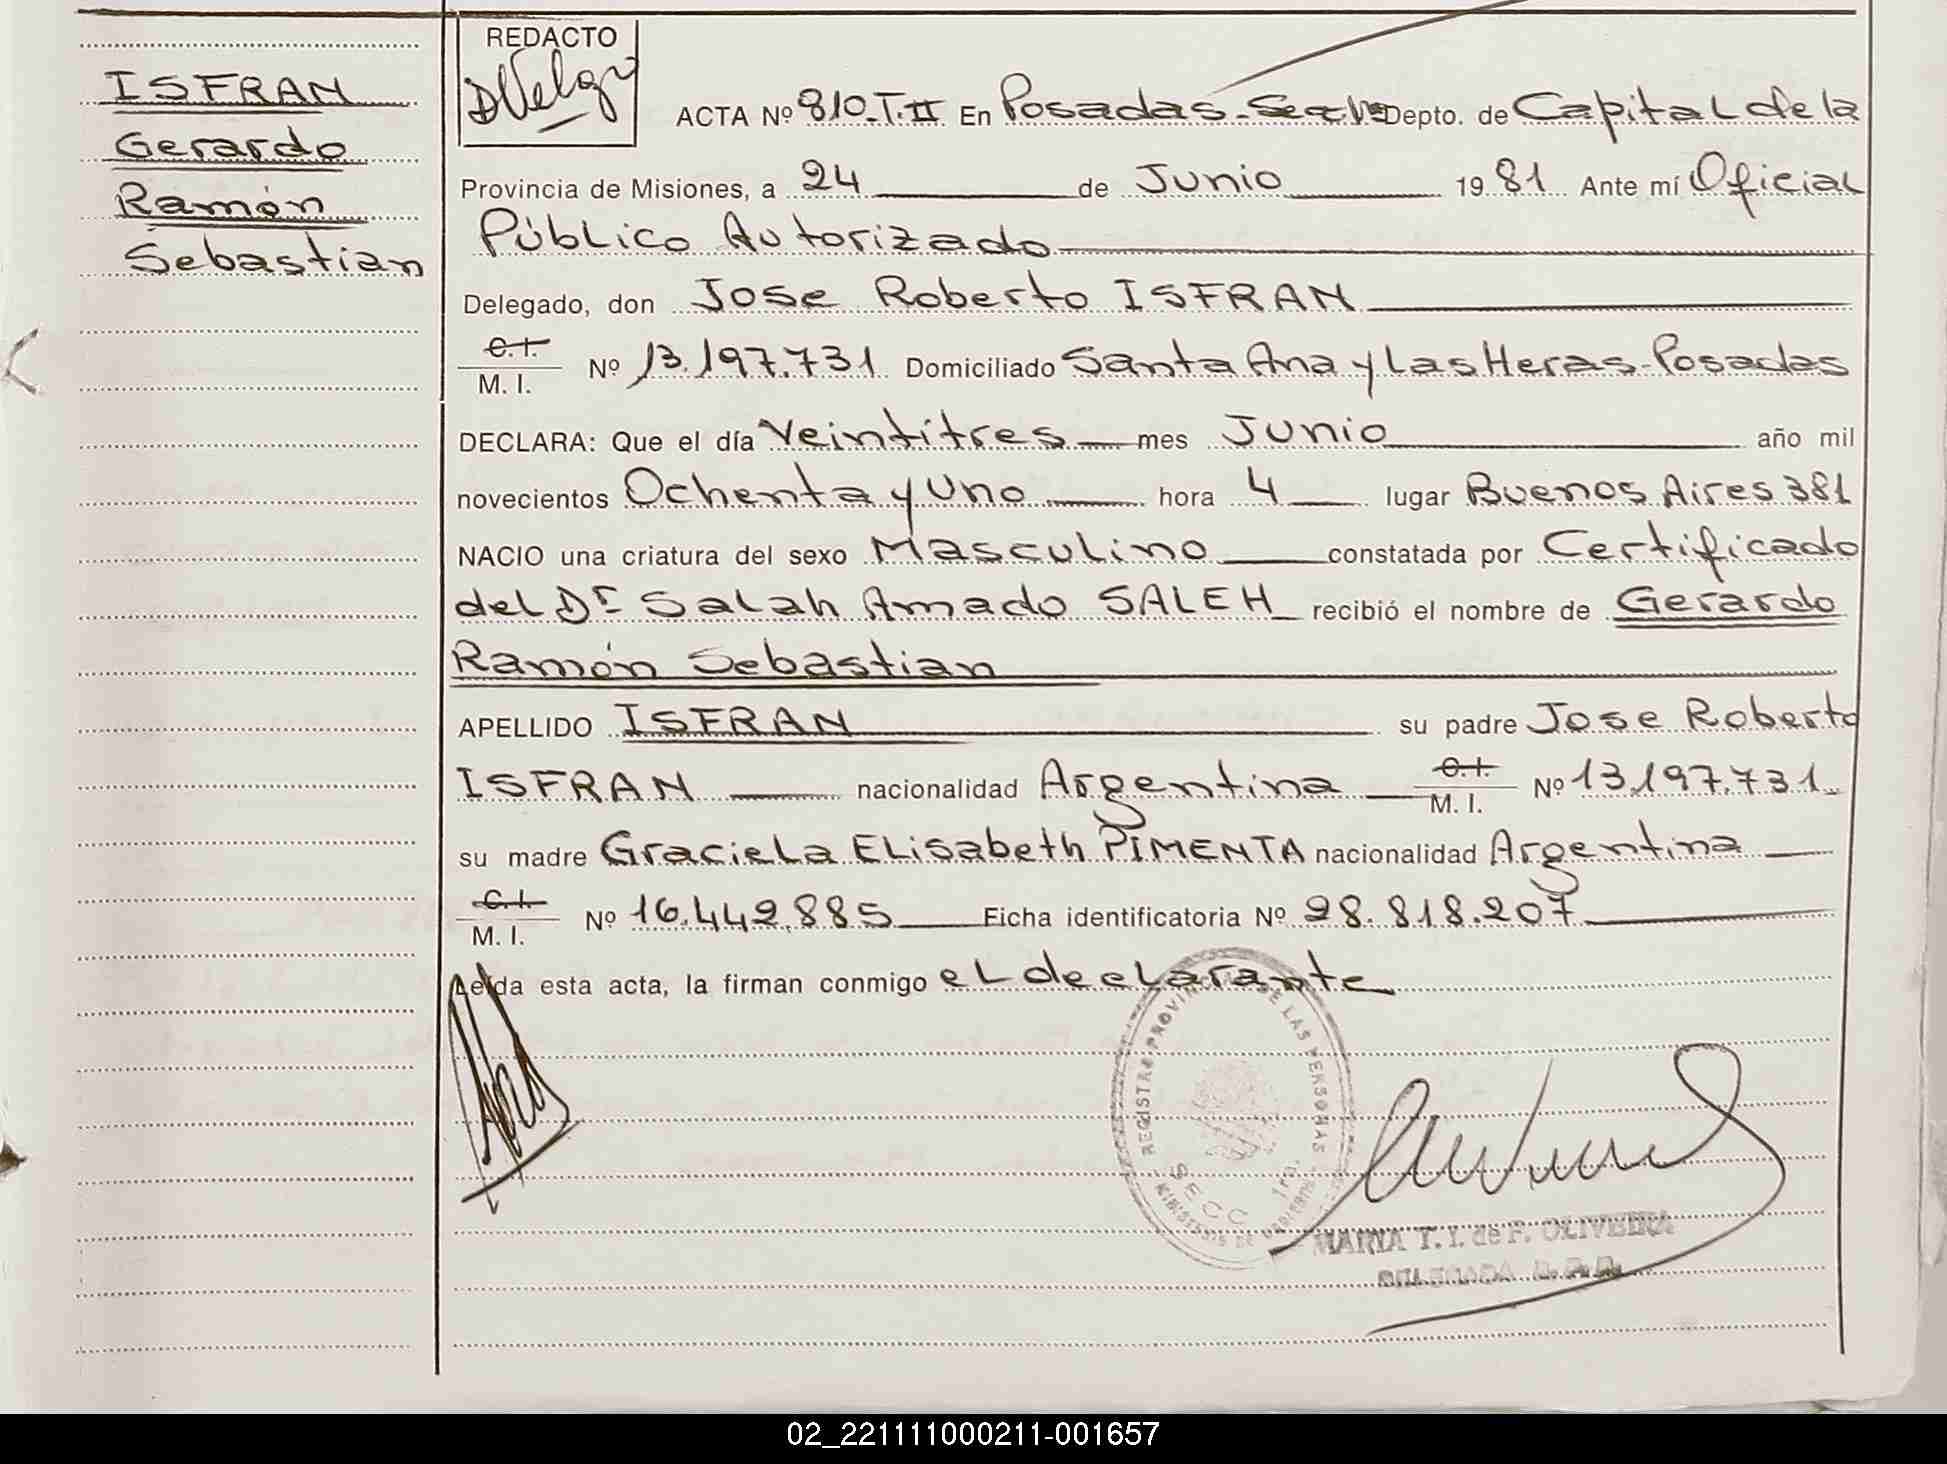 ISFRAN
Gerardo
Ramón
Sebastian
REDACTO
ACTA Nº 810-T.II En Posadas-Secc 1ª Depto. de Capital de la
Provincia de Misiones, a 24 de Junio 1981 Ante mí Oficial
Público Autorizado
Delegado, don Jose Roberto ISFRAN
C.I.
M. I. Nº 13.197.731 Domiciliado Santa Ana y Las Heras-Posadas
DECLARA: Que el día Veintitres mes Junio año mil
novecientos Ochenta y Uno hora 4 lugar Buenos Aires 381
NACIO una criatura del sexo Masculino constatada por Certificado
del Dr Salah Amado SALEH recibió el nombre de Gerardo
Ramón Sebastian
APELLIDO ISFRAN su padre Jose Roberto
ISFRAN nacionalidad Argentina C.I. M. I. Nº 13.197.731
su madre Graciela Elisabeth PIMENTA nacionalidad Argentina
C.I.
M. I. Nº 16.442.885 Ficha identificatoria Nº 28.818.207
Leída esta acta, la firman conmigo el declarante
REGISTRO PROVINCIAL DE LAS PERSONAS
SECC 1ra.
MARIA T. I. de F. OLIVEIRA
DELEGADA R.P.P.
02_221111000211-001657